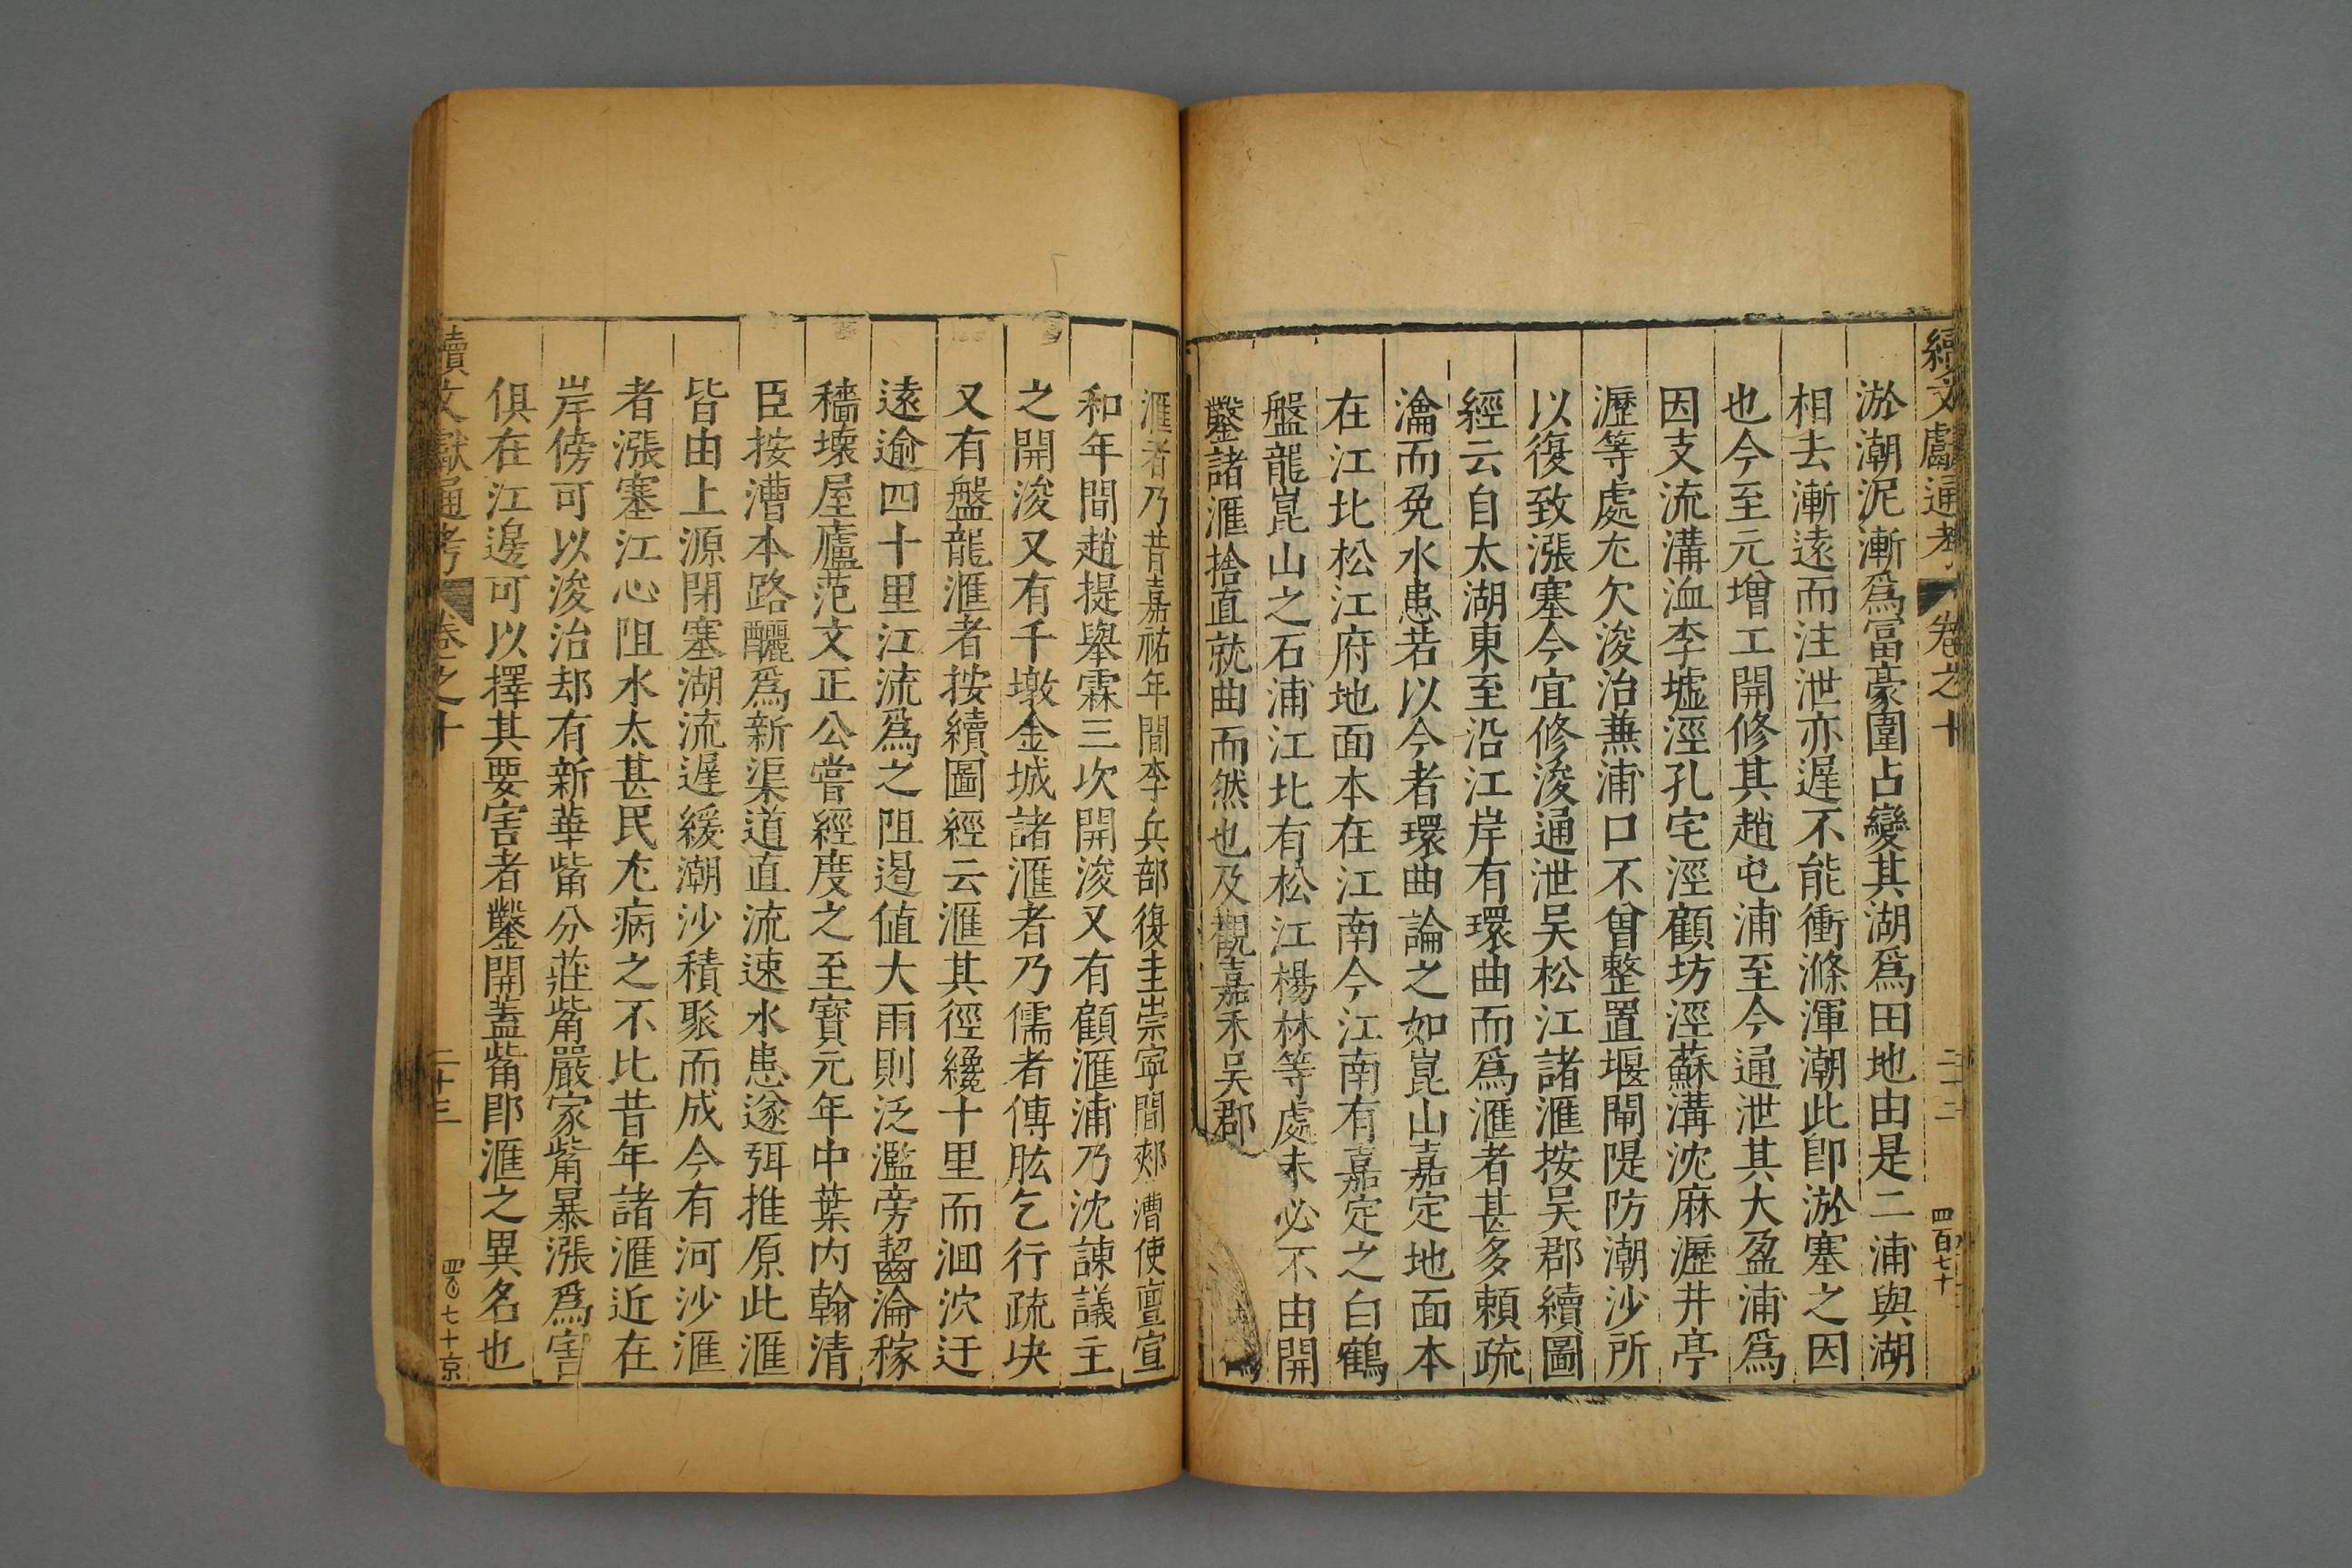 續文獻通考 卷之十 二十二 四百七十
淤潮泥漸爲冨豪圍占變其湖爲田地由是二浦與湖
相去漸遠而注泄亦遲不能衝滌渾潮此卽淤塞之因
也今至元增工開修其趙屯浦至今通泄其大盈浦爲
因支流溝洫李墟涇孔宅涇顧坊涇蘇溝沈麻瀝井亭
瀝等處尢欠浚治兼浦口不曾整置堰閘隄防潮沙所
以復致漲塞今宜修浚通泄吴松江諸滙按吴郡續圖
經云自太湖東至沿江岸有環曲而爲滙者甚多賴疏
瀹而免水患若以今者環曲論之如崑山嘉定地面本
在江北松江府地面本在江南今江南有嘉定之白鶴
盤龍崑山之石浦江北有松江楊林等處未必不由開
鑿諸滙捨直就曲而然也及觀嘉禾吴郡
滙者乃昔嘉祐年間李兵部復圭崇寧間郟漕使亶宣
和年間趙提舉霖三次開浚又有顧滙浦乃沈諫議主
之開浚又有千墩金城諸滙者乃儒者傅肱乞行疏决
又有盤龍滙者按續圖經云滙其徑纔十里而洄泬迂
遠逾四十里江流爲之阻遏値大雨則泛濫旁齧淪稼
穡壞屋廬范文正公嘗經度之至寳元年中葉内翰清
臣按漕本路釃爲新渠道直流速水患遂弭推原此滙
皆由上源閉塞湖流遲緩潮沙積聚而成今有河沙滙
者漲塞江心阻水太甚民尢病之不比昔年諸滙近在
岸傍可以浚治却有新華觜分莊觜嚴家觜暴漲爲害
俱在江邊可以擇其要害者鑿開葢觜卽滙之異名也
續文獻通考 卷之十 二十三 四〇七十京